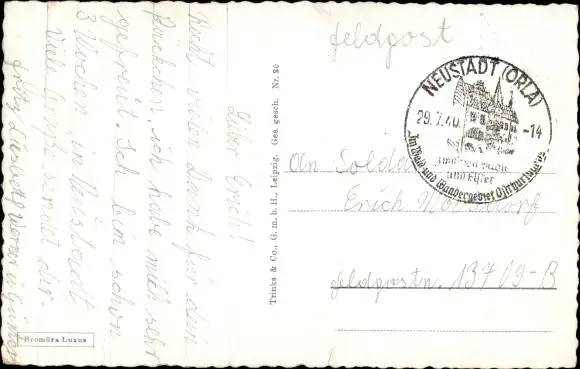 Feldpost
NEUSTADT (ORLA)
29.7.40.
-14
und Elster
Im Wald- und Wandergebiet Ostthüringens
An Soldat
Erich
Feldpostn. 13709-B
Lieber Erich!
Recht vielen Dank für dein
Päckchen, ich habe mich sehr
gefreut. Ich bin schon
3 Wochen in Neustadt
Viele Grüße sendet dir.
Fritz, Liesbeth, Werner u. Günter
Trinks & Co., G. m. b. H., Leipzig. Ges. gesch. Nr. 20
Bromüra Luxus